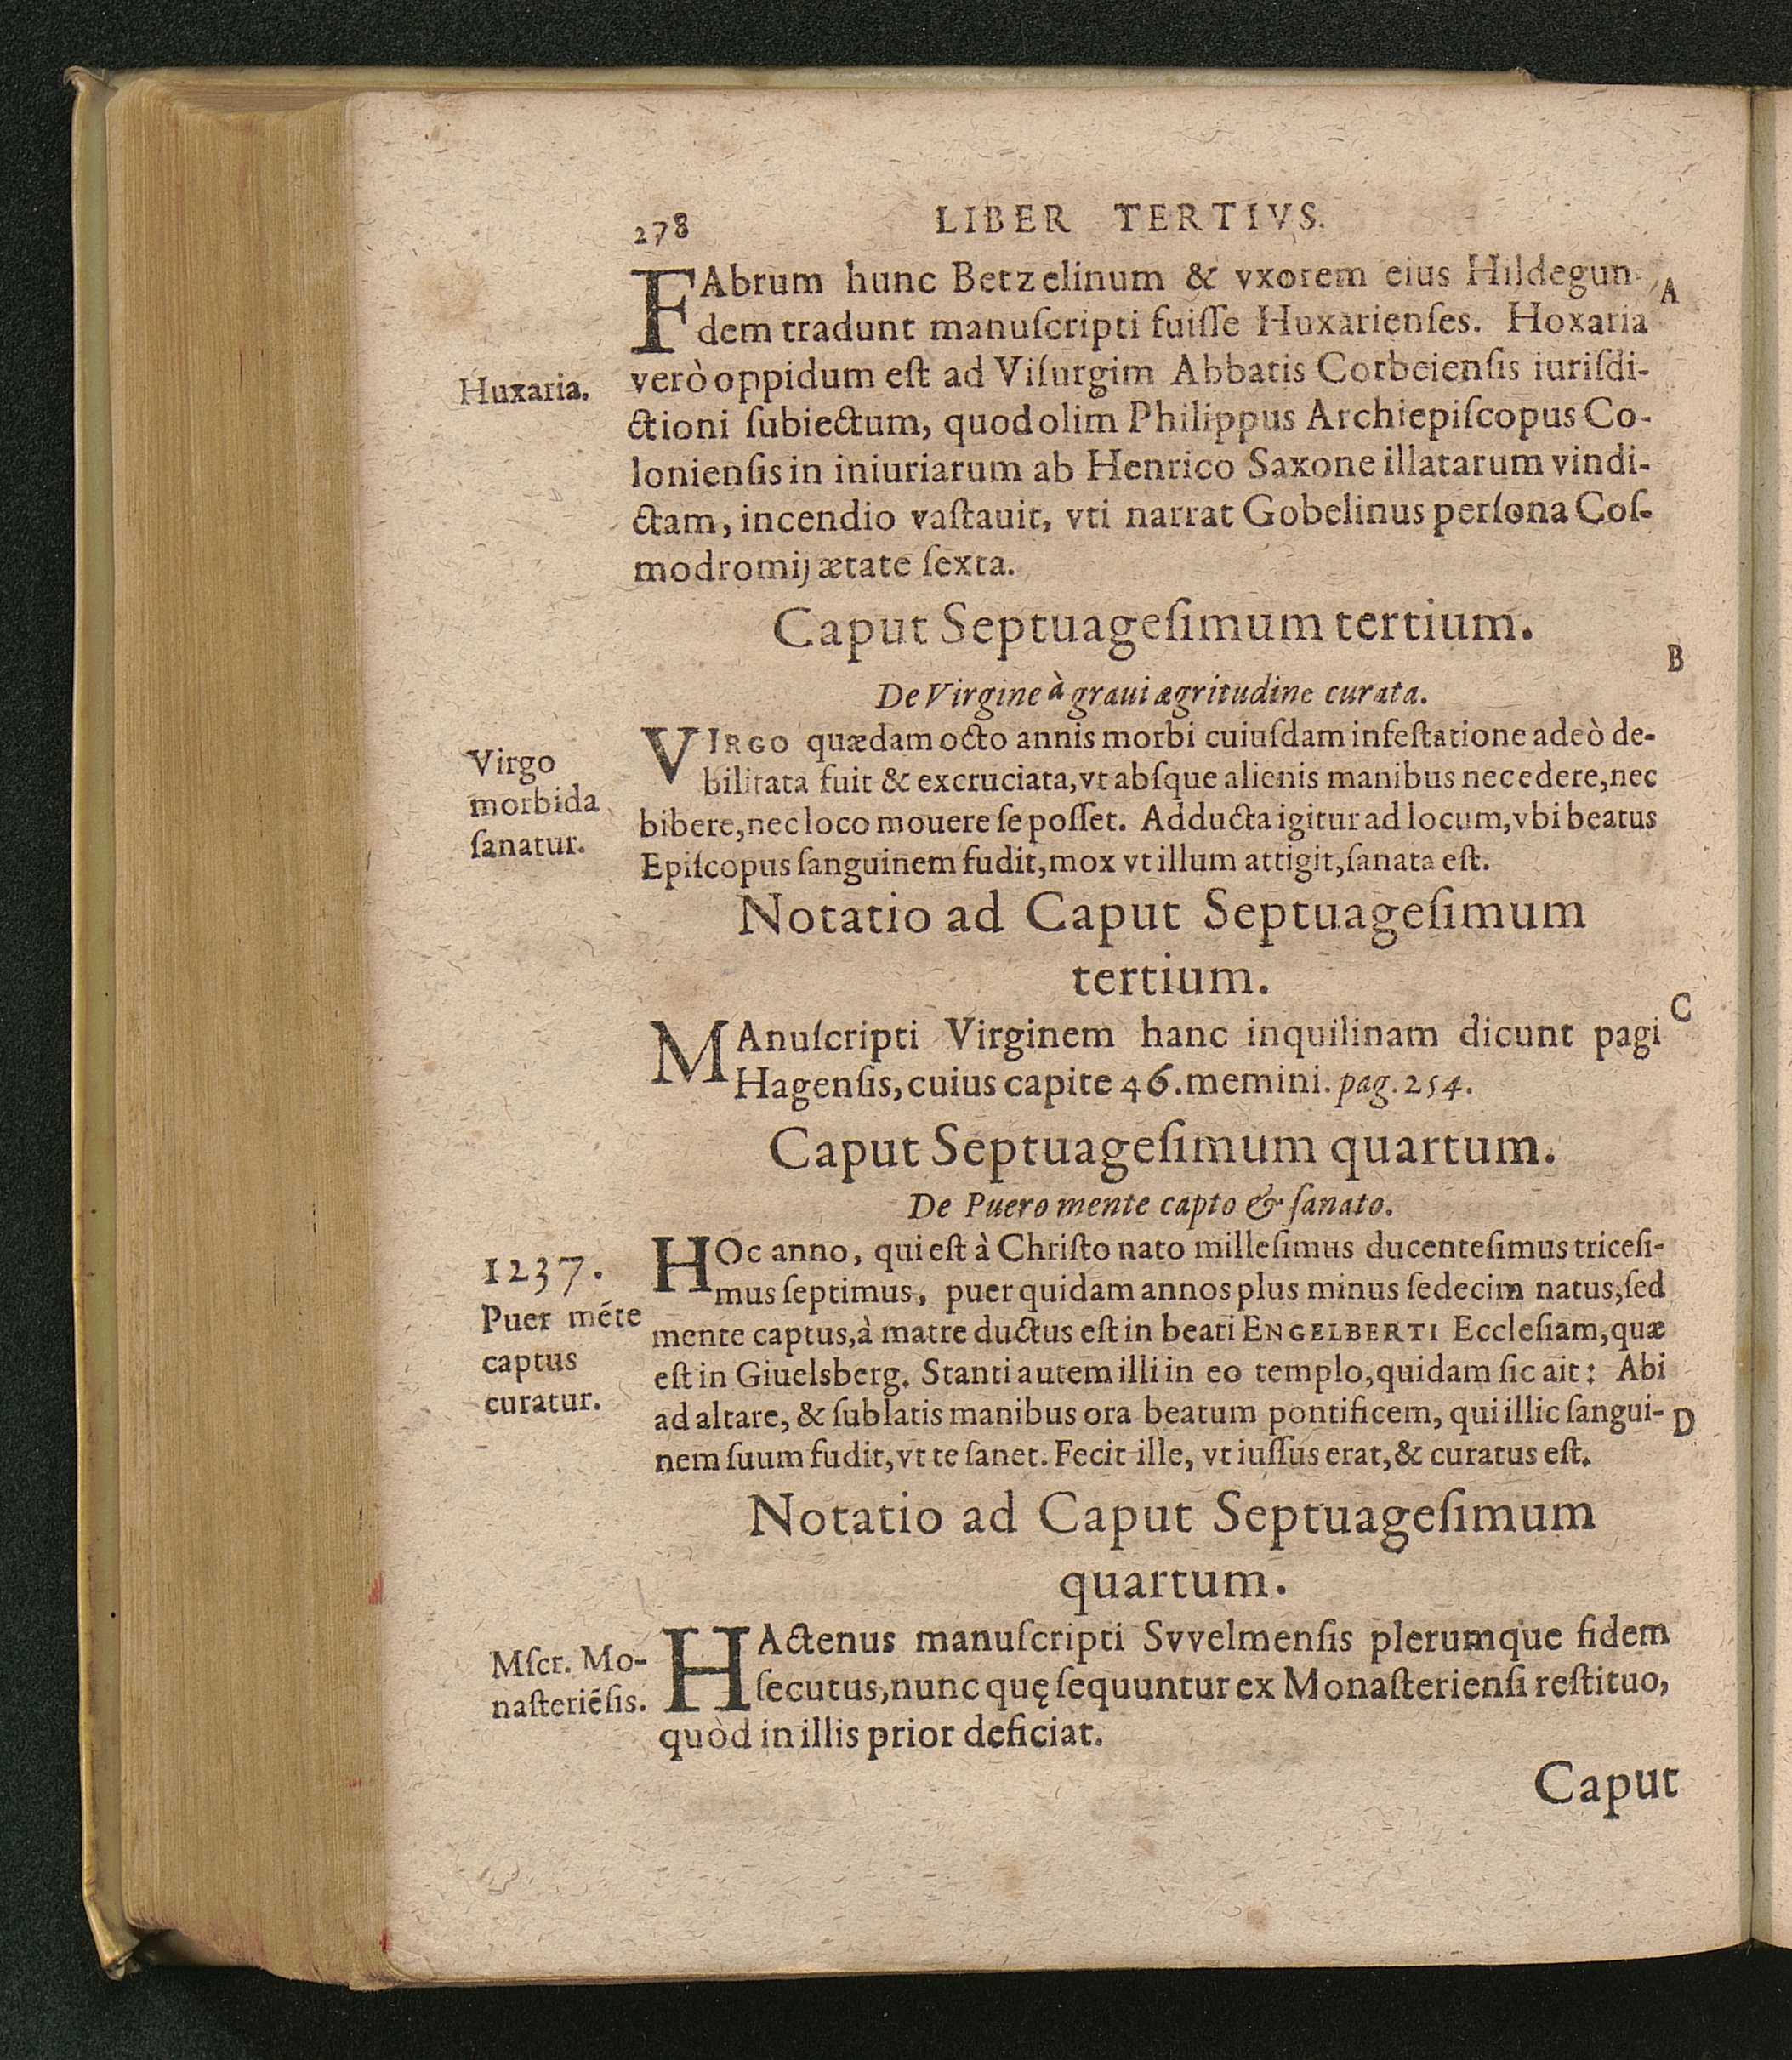 278
LIBER TERTIVS.
FAbrum hunc Betzelinum & vxorem eius Hildegun-
A
dem tradunt manuſcripti fuiſſe Huxarienſes. Hoxaria
Huxaria.
verò oppidum eſt ad Viſurgim Abbatis Corbeienſis iuriſdi-
ctioni ſubiectum, quod olim Philippus Archiepiſcopus Co-
lonienſis in iniuriarum ab Henrico Saxone illatarum vindi-
ctam, incendio vaſtauit, vti narrat Gobelinus perſona Coſ-
modromij ætate ſexta.
Caput Septuageſimum tertium.
B
De Virgine à graui ægritudine curata.
Virgo
morbida
ſanatur.
VIRGO quædam octo annis morbi cuiuſdam infeſtatione adeò de-
bilitata fuit & excruciata, vt abſque alienis manibus nec edere, nec
bibere, nec loco mouere ſe poſſet. Adducta igitur ad locum, vbi beatus
Epiſcopus ſanguinem fudit, mox vt illum attigit, ſanata eſt.
Notatio ad Caput Septuageſimum
tertium.
C
MAnuſcripti Virginem hanc inquilinam dicunt pagi
Hagenſis, cuius capite 46. memini. pag. 254.
Caput Septuageſimum quartum.
De Puero mente capto & ſanato.
1237.
Puer mẽte
captus
curatur.
HOc anno, qui eſt à Chriſto nato milleſimus ducenteſimus triceſi-
mus ſeptimus, puer quidam annos plus minus ſedecim natus, ſed
mente captus, à matre ductus eſt in beati ENGELBERTI Eccleſiam, quæ
eſt in Giuelsberg. Stanti autem illi in eo templo, quidam ſic ait: Abi
ad altare, & ſublatis manibus ora beatum pontificem, qui illic ſangui-
D
nem ſuum fudit, vt te ſanet. Fecit ille, vt iuſſus erat, & curatus eſt.
Notatio ad Caput Septuageſimum
quartum.
Mſcr. Mo-
naſteriẽſis.
HActenus manuſcripti Svvelmenſis plerumque fidem
ſecutus, nunc quę ſequuntur ex Monaſterienſi reſtituo,
quòd in illis prior deficiat.
Caput